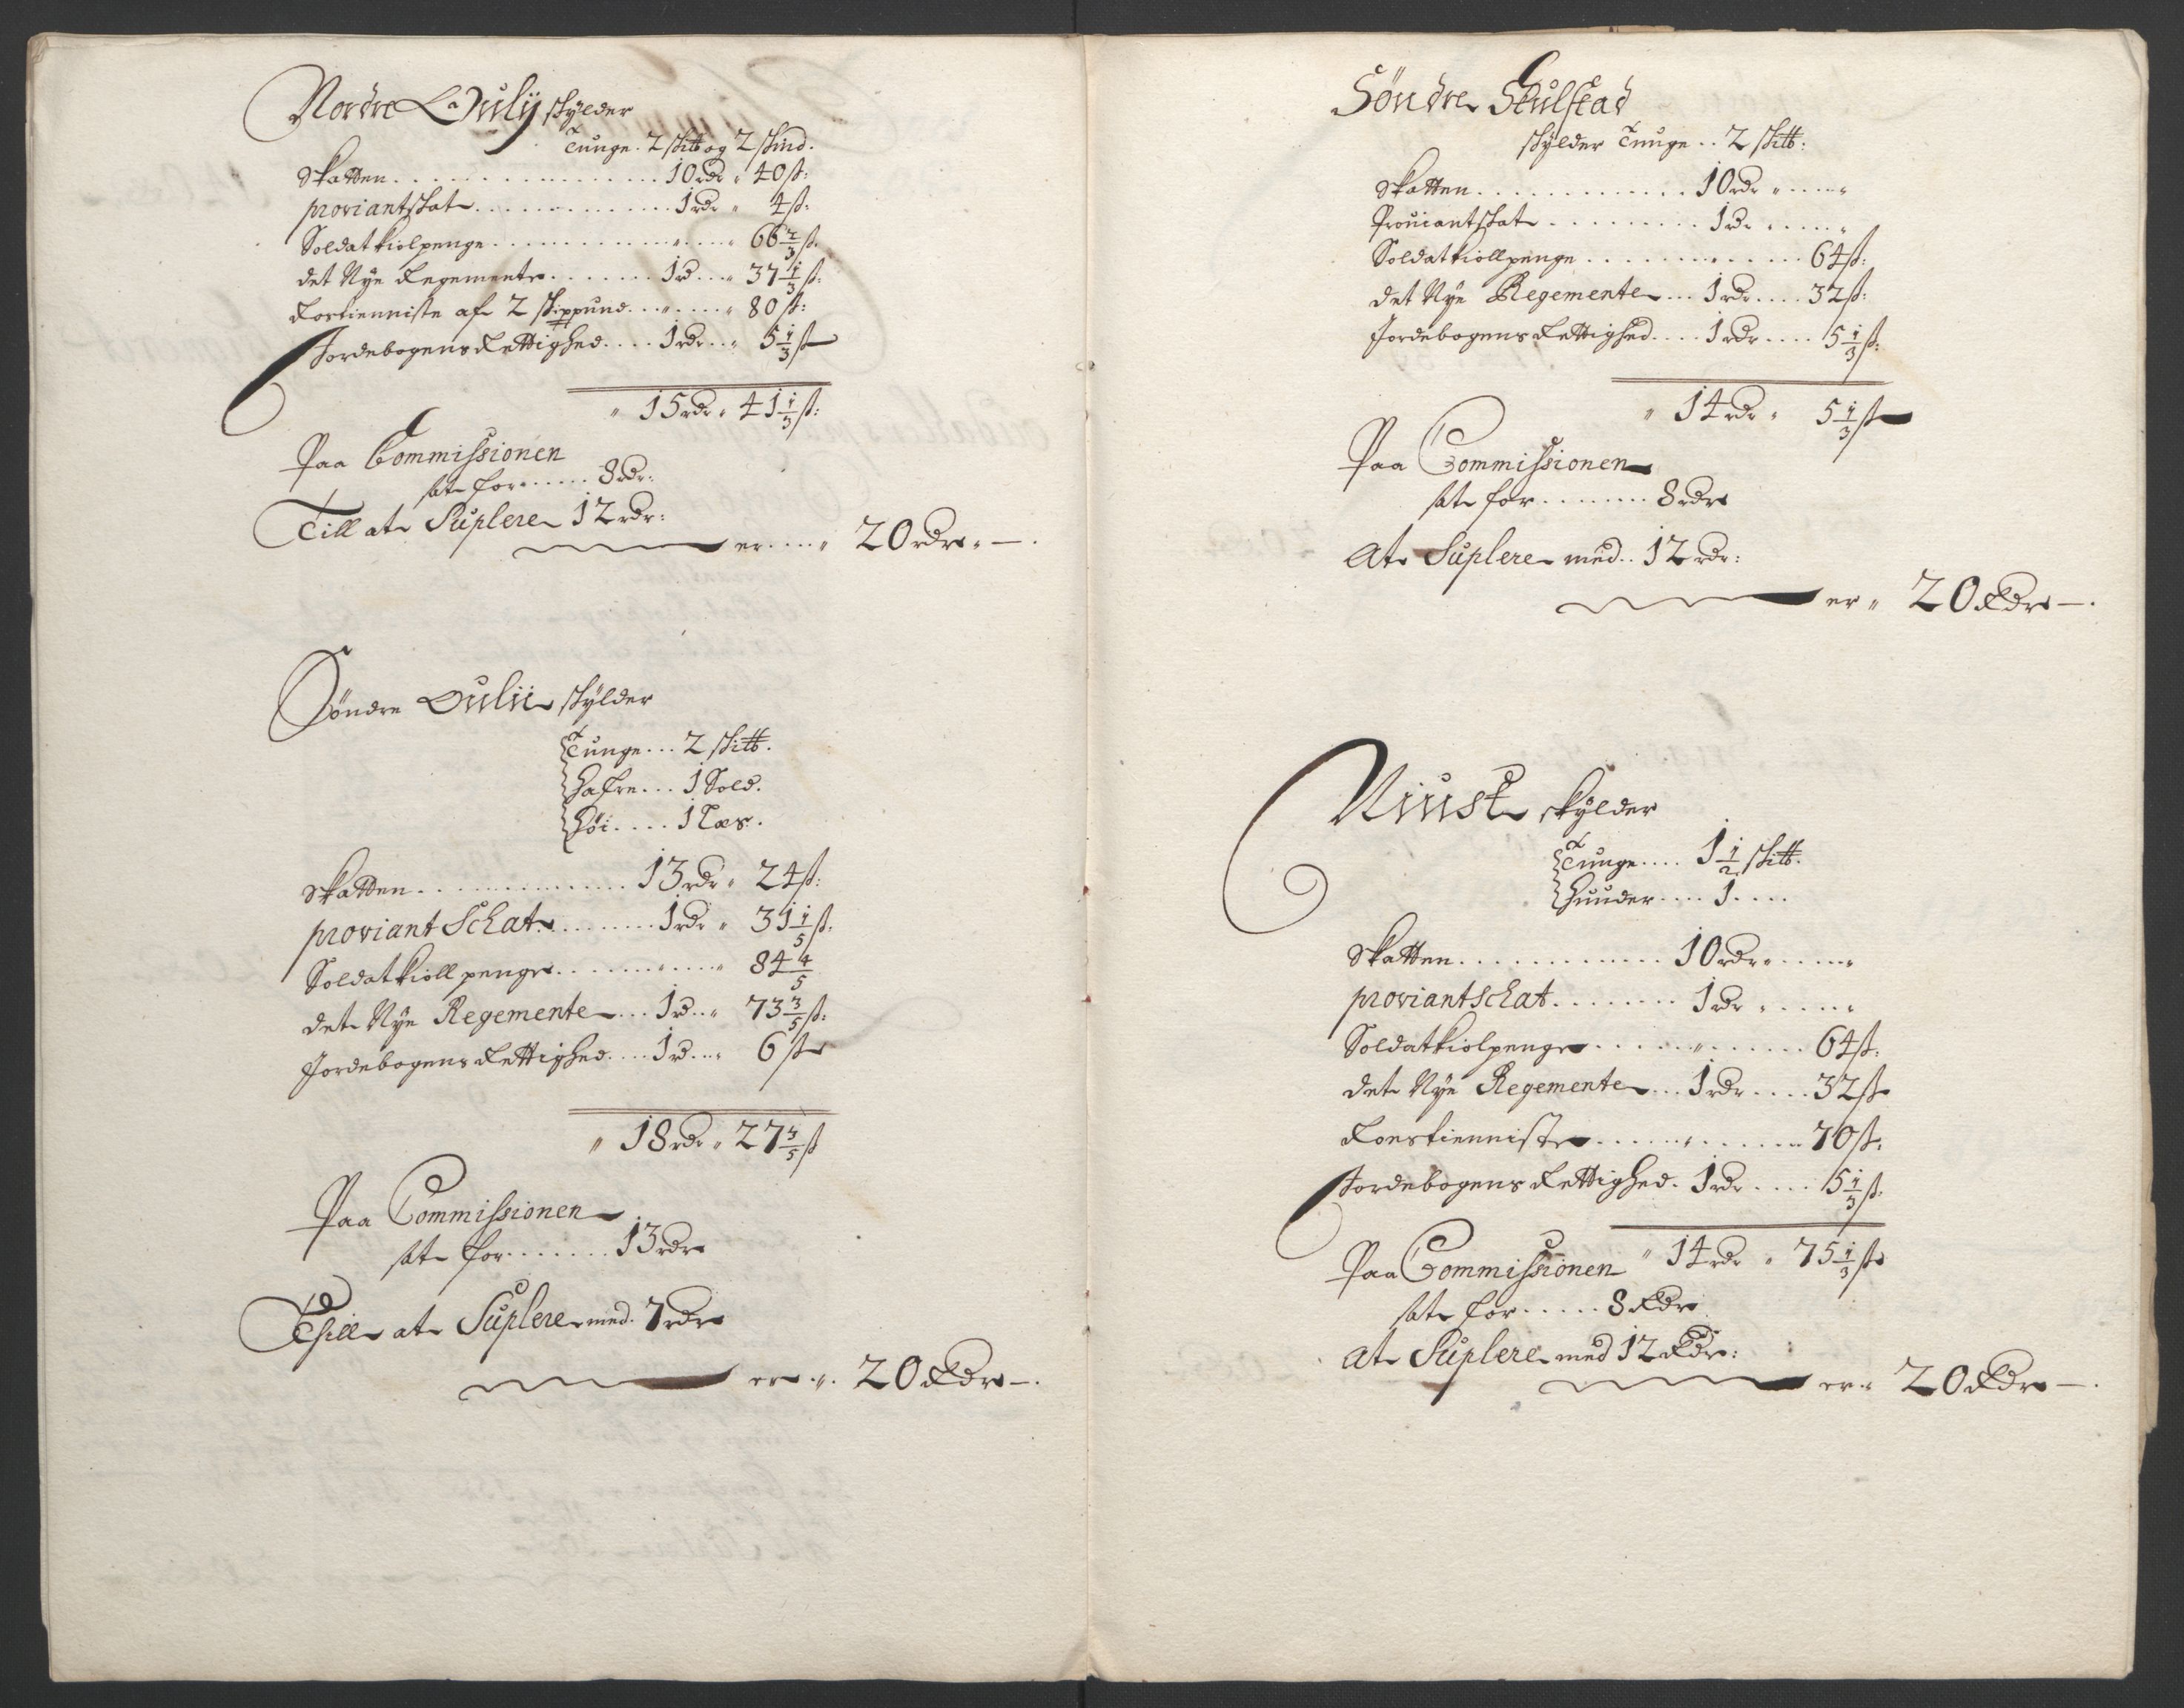 Nordre Ouly skylder
Tunge . 2 sk℔ og 2 skind.
Skatten . . . . 10 rdr „ 40 ß:
proviantskat . . . . 1 rdr „ 4 ß:
Soldatkiolpenge . . . . „ . . „ 66 2/3 ß.
det Nye Regemente . . . . 1 rd . . „ 37 1/3 ß:
Rostienniste af 2 skippund . . „ . . „ 80 ß:
Jordebogens Rettighed . . . . 1 rdr . . „ 5 1/3 ß
„ 15 rdr „ 41 1/3 ß:
Paa Commissionen
sat for . . . . 8 rdr:
Till at Suplere 12 rdr:
er . . . „ 20 rdr „ — .
Söndre Oulii skylder
Tunge . . . 2 sk℔.
Hafre . . . 1 Sold.
Höi . . . . 1 Læs.
Skatten . . . . 13 rdr „ 24 ß:
proviant Schat . . . . 1 rdr „ 31 1/5 ß.
Soldatkioll penge . . . . „ . . „ 84 4/5
det Nye Regemente . . . 1 rd . . „ 73 3/5 ß:
Jordebogens Rettighed . . . . 1 rd . . „ 6 ß
„ 18 rdr „ 27 3/5 ß
Paa Commissionen
sat for . . . . 13 rdr
Till at Suplere med . 7 rdr
er . „ . 20 Rdr — .
Söndre Skulstad
skylder Tunge . . 2 sk℔:
Skatten . . . . 10 rdr „ . . „
Prouiantskat . . . . 1 rdr . . . „
Soldatkiollpenge . . . . 64 ß:
det Nye Regemente . . . 1 rdr . . . . 32 ß:
Jordebogens Rettighed . . . . 1 rdr . . . . 5 1/3 ß:
„ 14 rdr „ 5 1/3 ß
Paa Commissionen
sat for . . . . 8 rdr
At Suplere med . . 12 rdr:
er „ 20 Rdr — .
Niust skylder
Tunge . . . . 1 1/2 sk℔.
Huuder . . . . 1 . . . .
Skatten . . . . 10 rdr „ . . „
proviantschat . . . . 1 rdr „ . . „
Soldatkiolpenge . . . . „ . . . . 64 ß:
det Nye Regemente . . . 1 rdr . . . . 32 ß
Roestienniste . . . . „ . . . . 70 ß:
Jordebogens Rettighed . 1 rdr . . . . 5 1/3 ß:
„ 14 rdr „ 75 1/3 ß
Paa Commissionen
sat for . . . . 8 Rdr
At Suplere med 12 Rdr:
er „ 20 Rdr — .